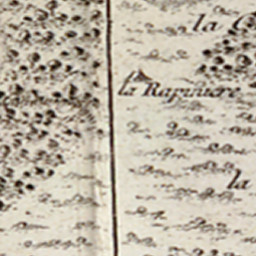 la C
la Rapiniere
la